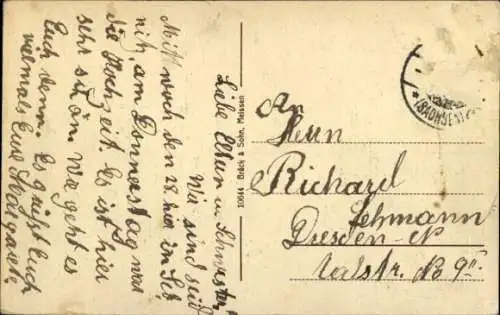 Liebe Eltern u Schwester
Wir sind seid
Mittwoch den 28. hier in Seb
nitz, am Donnerstag war
die Hochzeit. Es ist hier
sehr schön. Wie geht es
Euch denn. Es grüßt Euch
vielmals Eure Margarete
10644 Brück & Sohn, Meissen
An
Herrn
Richard
Lehmann
Dresden-N
str. No 9II
(SACHSEN)